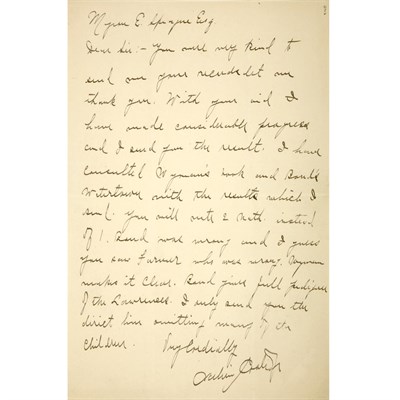 Myron E. Sprague Esq.
Dear Sir:- You were very kind to
send me your records let me
thank you. With your aid I
have made considerable progress
and I send you the result. I have
consulted Wyman's book and Bond's
Watertown with the results which I
send. You will note 2 Nath. instead
of 1. Bond was wrong and I guess
you saw Farmer who was wrong. Wyman
makes it clear. Bond gives full pedigree
of the Lawrences. I only send you the
direct line omitting many of the
children. Very Cordially